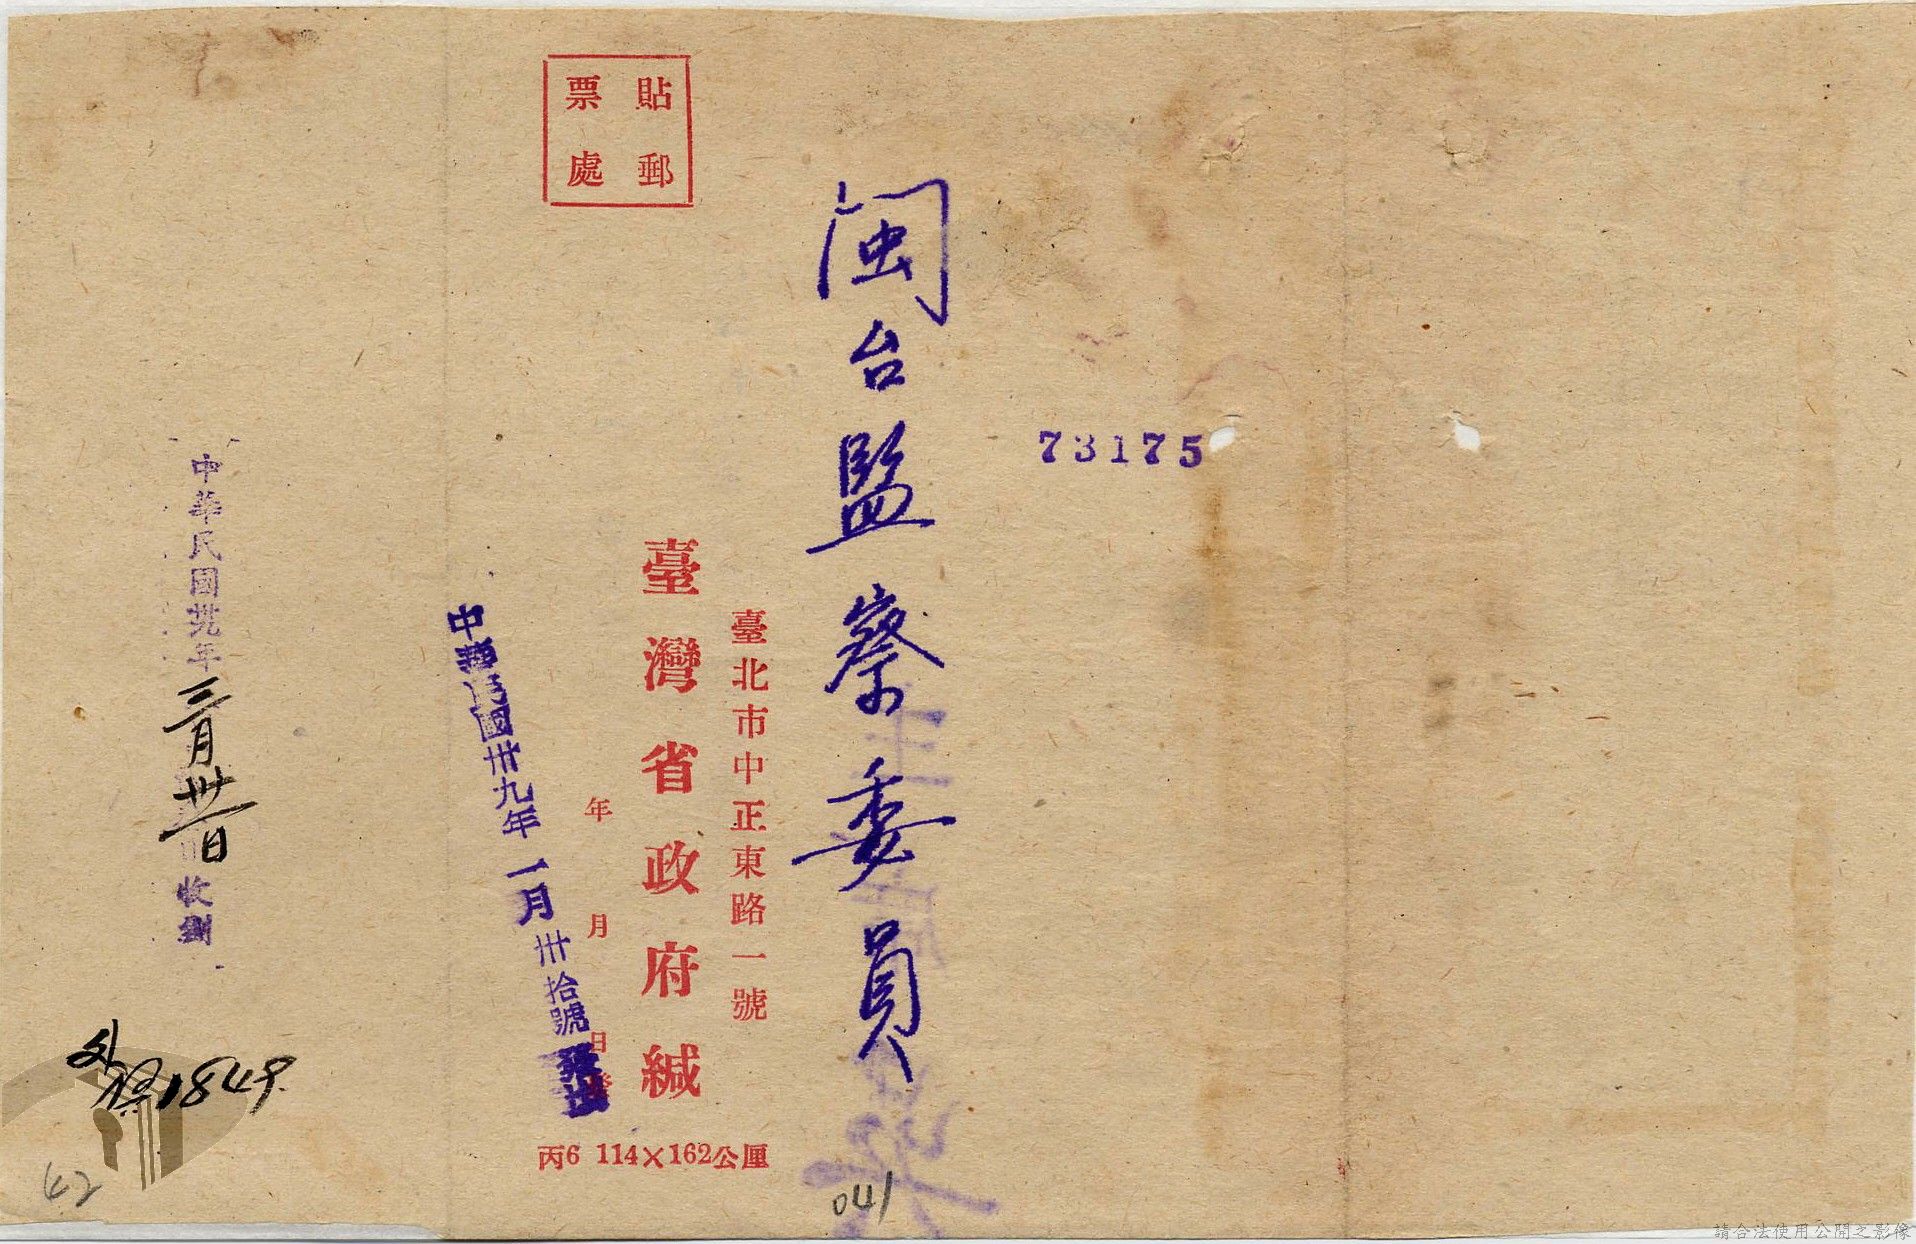 73175
閩台監察委員
臺北市中正東路一號
貼郵
票處
臺灣省政府緘
年 月 日
中華民國卅九年一月卅拾號
丙6 114×162公厘
中華民國卅九年三月卅一日收到
1849.
041
42
請合法使用公開之影像